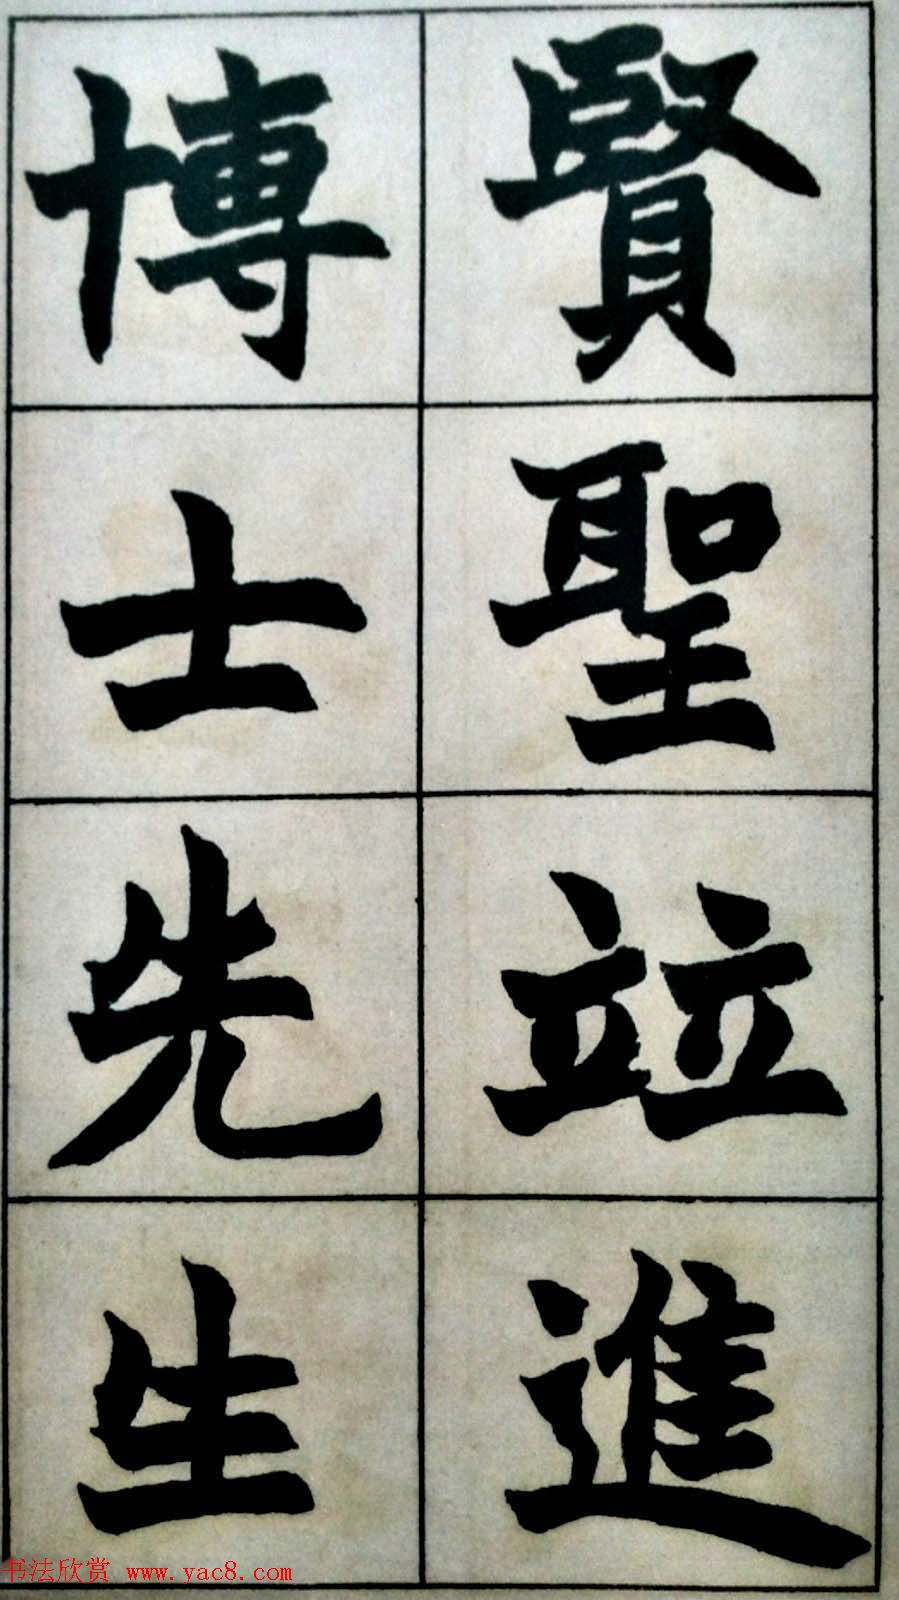 賢聖竝進
博士先生
书法欣赏 www.yac8.com